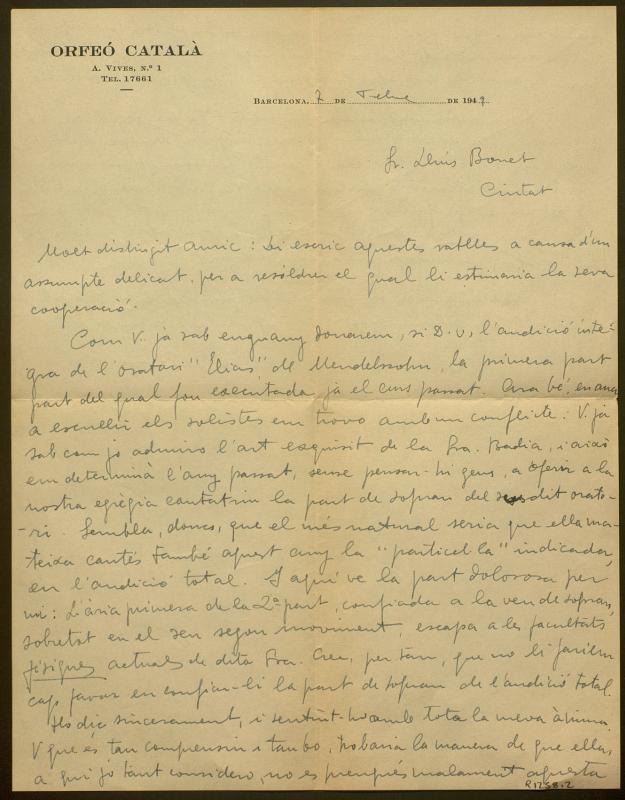 ORFEÓ CATALÀ
A. VIVES, N.º 1
TEL. 17661
BARCELONA, 7 DE Febre DE 1949
Sr. Lluís Bonet
Ciutat
Molt distingit amic: Li escric aquestes ratlles a causa d'un
assumpte delicat, per a resoldre el qual li estimaria la seva
cooperació.
Com V. ja sab enguany donarem, si D. v., l'audició inte-
gra de l'oratori "Elias" de Mendelssohn, la primera part
part del qual fou executada ja el curs passat. Ara bé, en anar
a escullir els solistes em trovo amb un conflicte: V. ja
sab com jo admiro l'art exquisit de la Sra. Badia, i això
em determinà l'any passat, sense pensar-hi gens, a oferir a la
nostra egrègia cantatriu la part de sopran del susdit orato-
-ri. Sembla, doncs, que el més natural seria que ella ma-
teixa cantés també aquest any la "particel·la" indicada,
en l'audició total. I aquí ve la part dolorosa per
mi: L'ària primera de la 2ª part, confiada a la veu de sopran,
sobretot en el seu segon moviment, escapa a les facultats
físiques actuals de dita Sra. Crec, per tan, que no li fariem
cap favor en confiar-li la part de sopran de l'audició total.
Ho dic sincerament, i sentint-ho amb tota la meva ànima.
V. que és tan comprensiu i tan bo, trobaria la manera de que ella,
a qui jo tant considero, no es prengués malament aquesta
R1258.2